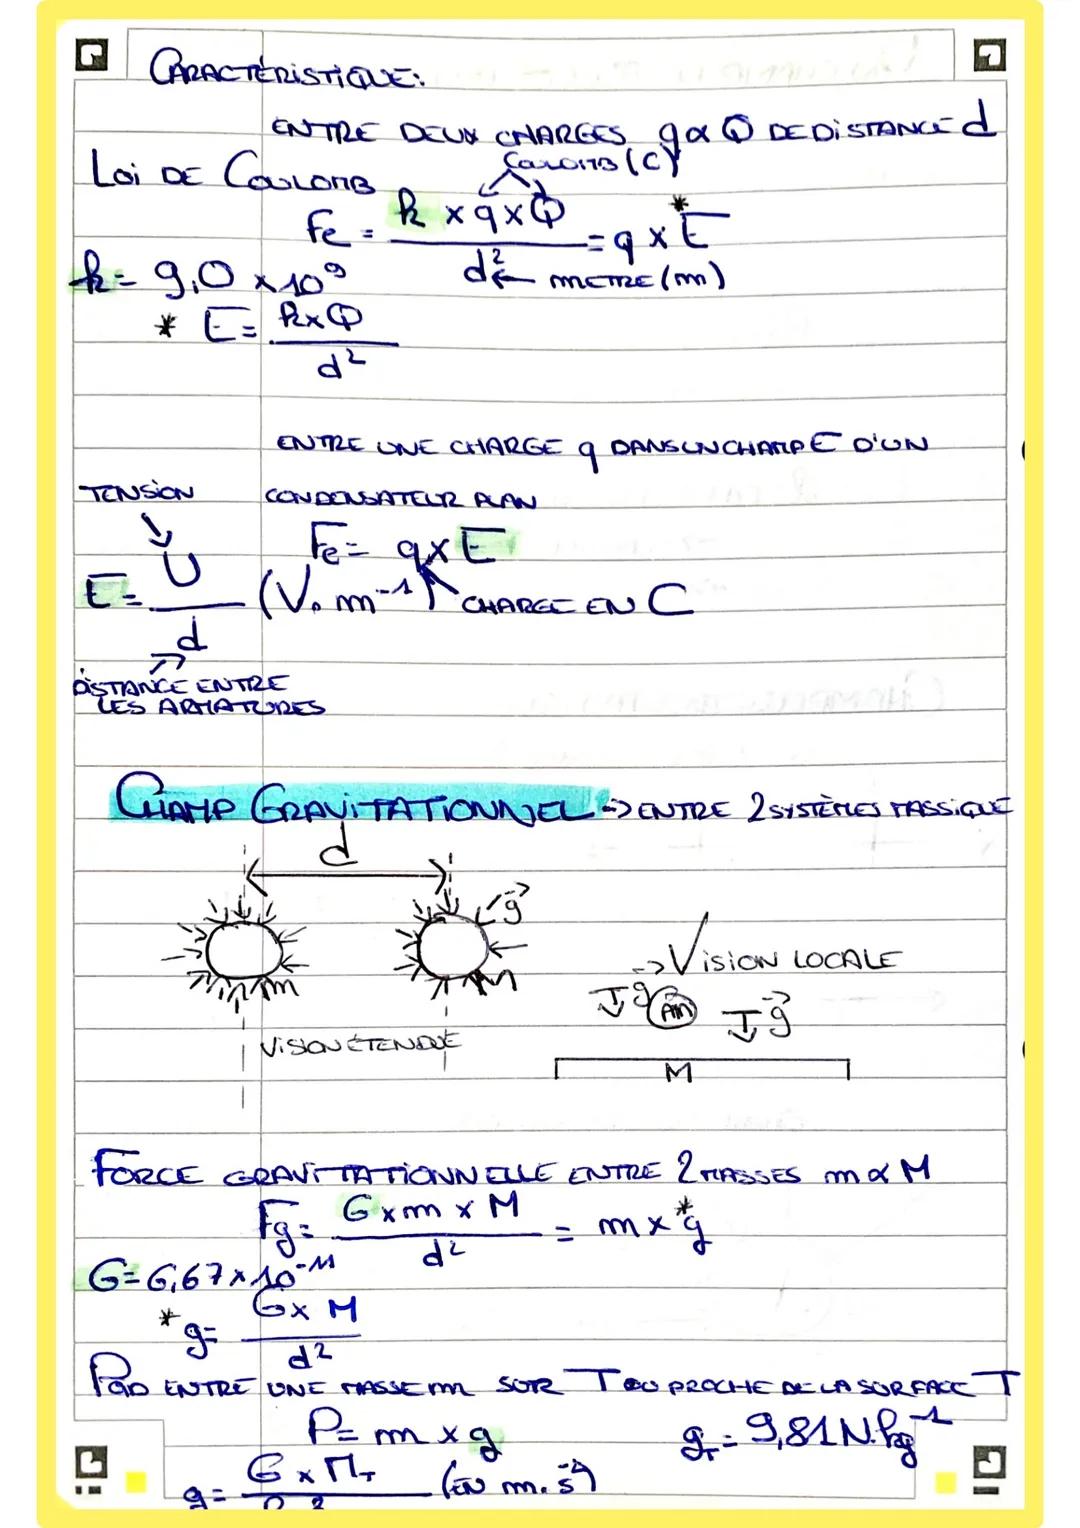 CARACTÉRISTIQUE:
ENTRE DEUX CHARGES q & Q DE DISTANCE d
LOI DE COULOMB
COULOMB (C)
Fe = k × q × Q / d² = q × E*
METRE (m)
k = 9,0 × 10⁹
* E = k × Q / d²
ENTRE UNE CHARGE q DANS UN CHAMP E D'UN
CONDENSATEUR PLAN
TENSION
Fe = q × E
E = U / d (V.m⁻¹)
CHARGE EN C
DISTANCE ENTRE
LES ARMATURES
CHAMP GRAVITATIONNEL -> ENTRE 2 SYSTÈMES MASSIQUE
d
g
m
M
VISION ÉTENDUE
-> VISION LOCALE
g
m
g
M
FORCE GRAVITATIONNELLE ENTRE 2 MASSES m & M
Fg = G × m × M / d² = m × g*
G = 6,67 × 10⁻¹¹
* g = G × M / d²
POID ENTRE UNE MASSE m SUR T OU PROCHE DE LA SURFACE T
P = m × g
gT = 9,81 N.kg⁻¹
g = G × MT (EN m.s⁻²)